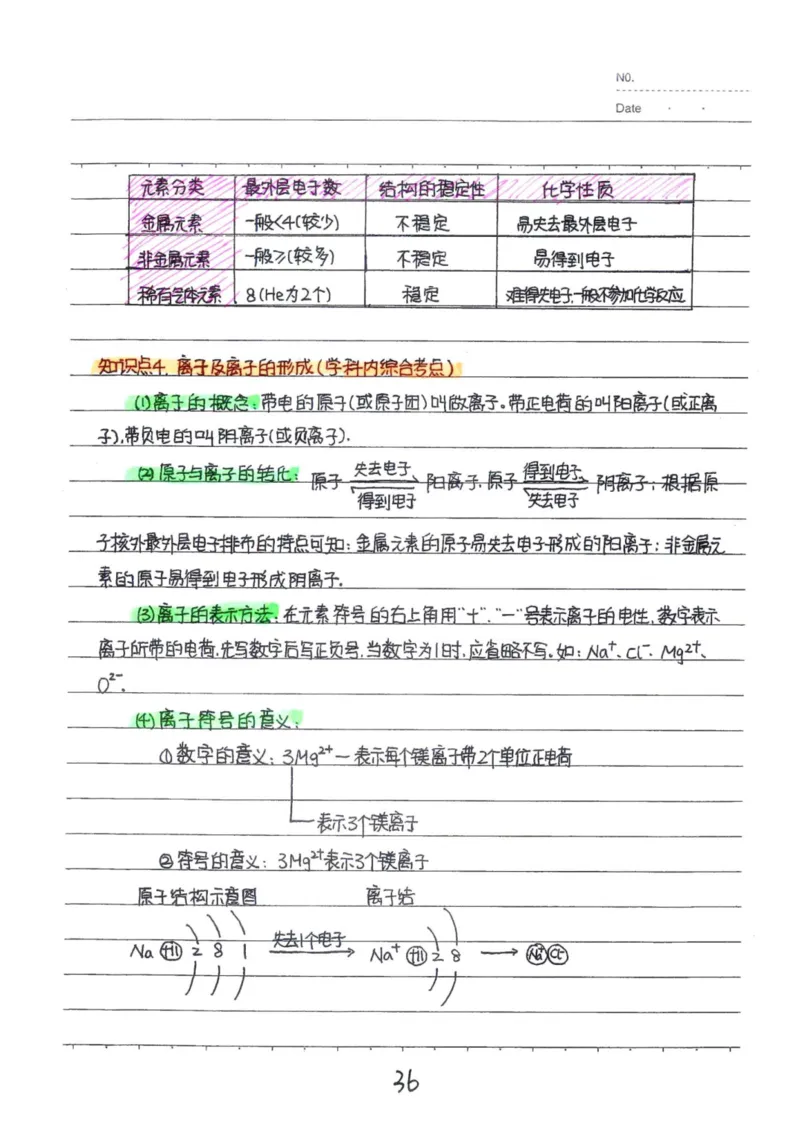 NO.
Date
元素分类 最外层电子数 结构的稳定性 化学性质
金属元素 一般<4(较少) 不稳定 易失去最外层电子
非金属元素 一般≥(较多) 不稳定 易得到电子
稀有气体元素 8(He为2个) 稳定 难得失电子,一般不参加化学反应
知识点4. 离子及离子的形成(学科内综合考点)
(1)离子的概念:带电的原子(或原子团)叫做离子。带正电荷的叫阳离子(或正离
子),带负电的叫阴离子(或负离子).
(2)原子与离子的转化: 原子 失去电子 得到电子 阳离子,原子 得到电子 失去电子 阴离子;根据原
子核外最外层电子排布的特点可知:金属元素的原子易失去电子形成的阳离子;非金属元
素的原子易得到电子形成阴离子.
(3)离子的表示方法:在元素符号的右上角用"+"."—"号表示离子的电性,数字表示
离子所带的电荷,先写数字后写正负号,当数字为1时,应省略不写。如:Na⁺、Cl⁻、Mg²⁺、
O²⁻.
(4)离子符号的意义:
①数字的意义:3Mg²⁺—表示每个镁离子带2个单位正电荷
表示3个镁离子
②符号的意义:3Mg²⁺表示3个镁离子
原子结构示意图 离子结
Na +11 2 8 1 失去1个电子 Na⁺ +11 2 8 → Na⁺ Cl⁻
36